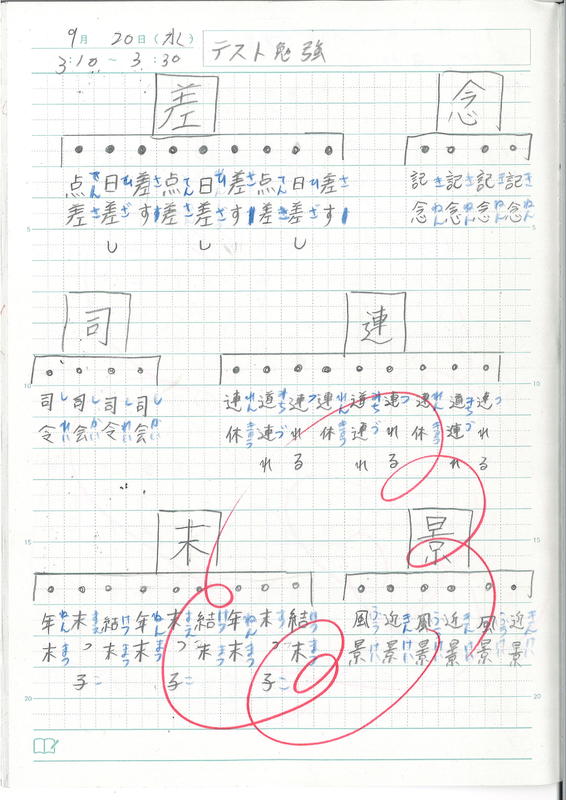 9月 20日(水)
3:10 ~ 3:30
テスト勉強
差
点てん 日ひ 差さ 点てん 日ひ 差さ 点てん 日ひ 差さ
差さ 差ざ す 差さ 差ざ す 差さ 差ざ す
し し し
念
記き 記き 記き 記き
念ねん 念ねん 念ねん 念ねん
司
司し 司し 司し 司し
令れい 会かい 令れい 会かい
連
連れん 道みち 連つ 連れん 道みち 連つ 連れん 道みち 連つ
休きゅう 連づ れ 休きゅう 連づ れ 休きゅう 連づ れ
れ る れ る れ る
末
年ねん 末すえ 結けつ 年ねん 末すえ 結けつ 年ねん 末すえ 結けつ
末まつ っ 末まつ 末まつ っ 末まつ 末まつ っ 末まつ
子こ 子こ 子こ
景
風ふう 近きん 風ふう 近きん 風ふう 近きん
景けい 景けい 景けい 景けい 景けい 景けい
5
10
15
20
5
10
15
20